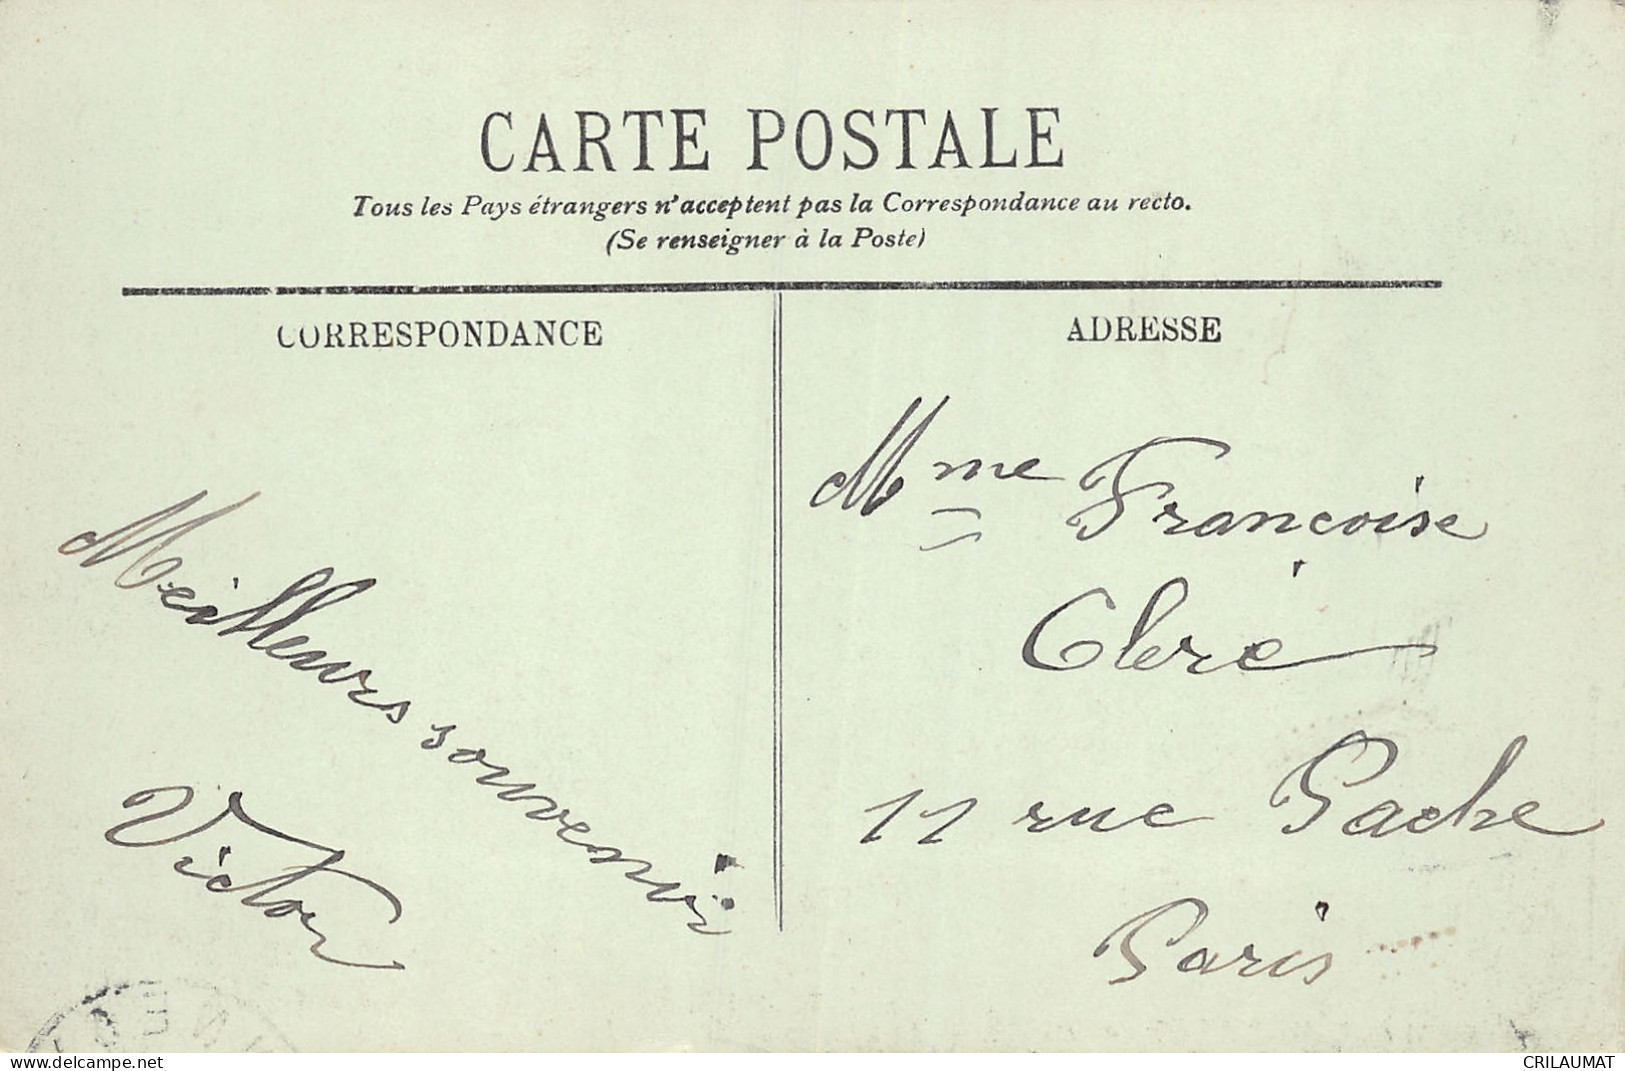 CARTE POSTALE
Tous les Pays étrangers n'acceptent pas la Correspondance au recto.
(Se renseigner à la Poste)
CORRESPONDANCE
Meilleurs souvenir
Victor
ADRESSE
Mme Francoise
11 rue Pache
Paris
CRILAUMAT